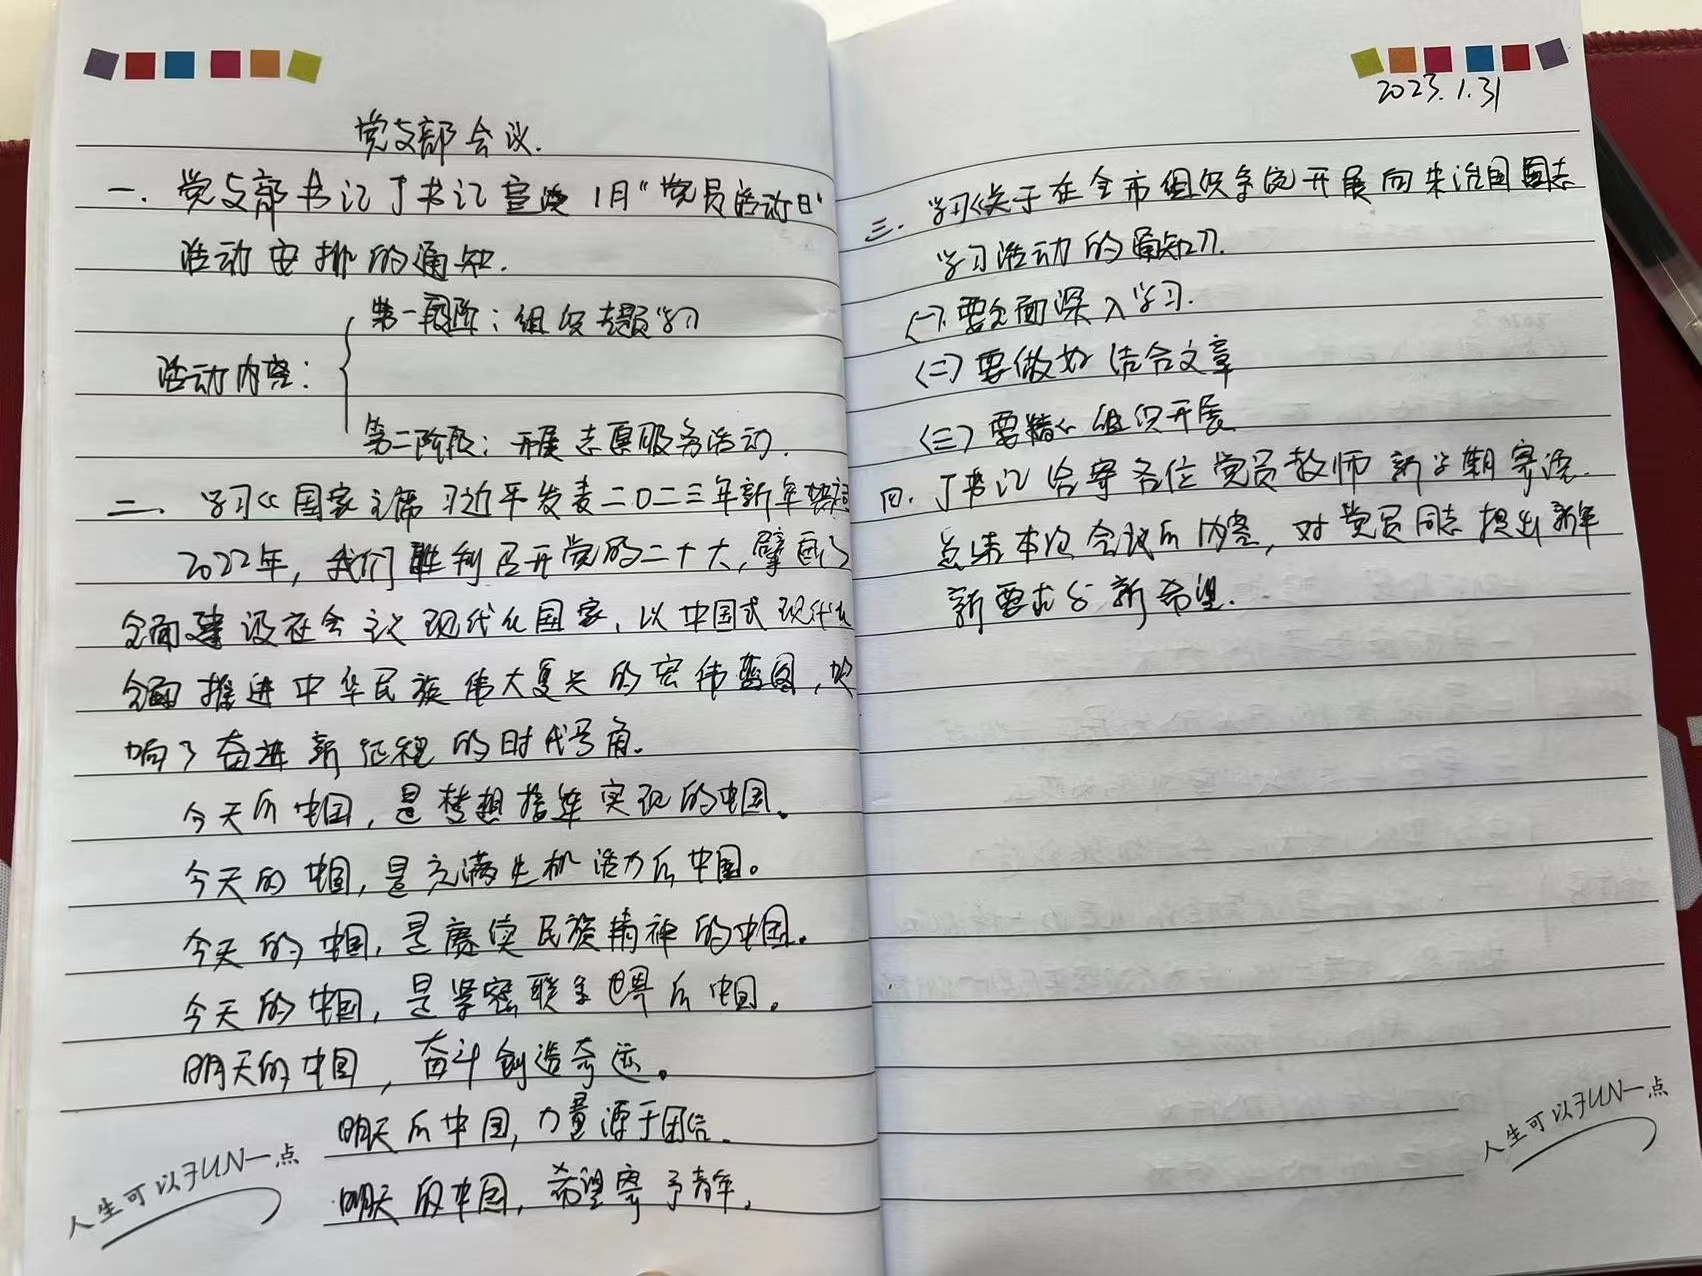 党支部会议.
一. 党支部书记丁书记宣读1月“党员活动日”
活动安排的通知.
第一阶段：组织专题学习
活动内容：
第二阶段：开展志愿服务活动.
二. 学习《国家主席习近平发表二〇二三年新年贺词
2022年，我们胜利召开党的二十大，擘画了
全面建设社会主义现代化国家、以中国式现代化
全面推进中华民族伟大复兴的宏伟蓝图，吹
响了奋进新征程的时代号角.
今天的中国，是梦想接连实现的中国。
今天的中国，是充满生机活力的中国。
今天的中国，是赓续民族精神的中国。
今天的中国，是紧密联系世界的中国。
明天的中国，奋斗创造奇迹。
明天的中国，力量源于团结.
明天的中国，希望寄予青年。
人生可以FUN一点
2023.1.31
三. 学习《关于在全市组织系统开展向朱治国同志
学习活动的通知》.
(一). 要全面深入学习.
(二) 要做好结合文章
(三) 要精心组织开展
四. 丁书记给寄各位党员教师新学期寄语.
总结本次会议的内容，对党员同志提出新年
新要求与新希望.
人生可以FUN一点